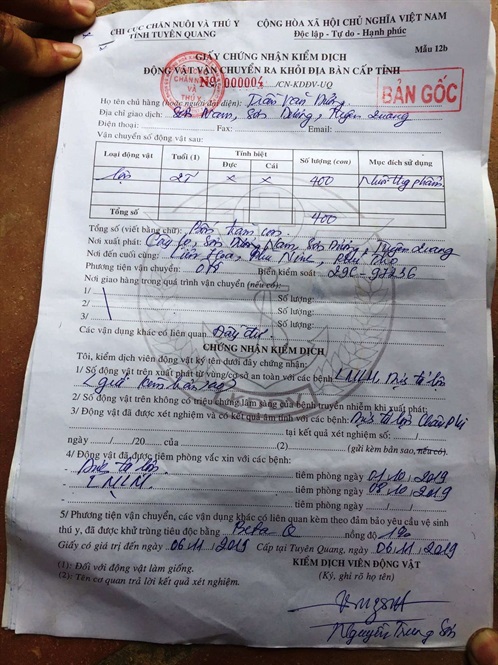 CHI CỤC CHĂN NUÔI VÀ THÚ Y
TỈNH TUYÊN QUANG
CỘNG HÒA XÃ HỘI CHỦ NGHĨA VIỆT NAM
Độc lập - Tự do - Hạnh phúc
Mẫu 12b
GIẤY CHỨNG NHẬN KIỂM DỊCH
ĐỘNG VẬT VẬN CHUYỂN RA KHỎI ĐỊA BÀN CẤP TỈNH
Nº 000004 /CN-KDĐV-UQ
BẢN GỐC
CHĂN NUÔI VÀ THÚ Y
Họ tên chủ hàng (hoặc người đại diện): Trần Văn Dũng
Địa chỉ giao dịch: Sơn Nam, Sơn Dương, Tuyên Quang
Điện thoại: Fax: Email:
Vận chuyển số động vật sau:
Loại động vật Tuổi (1) Tính biệt Số lượng (con) Mục đích sử dụng
Đực Cái
Lợn 2T x x 400 Nuôi thg phẩm
Tổng số 400
Tổng số (viết bằng chữ): Bốn trăm con
Nơi xuất phát: Sơn Nam, Sơn Dương, Tuyên Quang
Nơi đến cuối cùng: Phù Ninh, Phú Thọ
Phương tiện vận chuyển: Ô tô Biển kiểm soát: 29C-97236
Nơi giao hàng trong quá trình vận chuyển (nếu có):
1/ Số lượng:
2/ Số lượng:
3/ Số lượng:
Các vận dụng khác có liên quan: Đầy đủ
CHỨNG NHẬN KIỂM DỊCH
Tôi, kiểm dịch viên động vật ký tên dưới đây chứng nhận:
1/ Số động vật trên xuất phát từ vùng/cơ sở an toàn với các bệnh: LMLM, Dịch tả lợn
(gửi kèm bản sao)
2/ Số động vật trên không có triệu chứng lâm sàng của bệnh truyền nhiễm khi xuất phát;
3/ Động vật đã được xét nghiệm và có kết quả âm tính với các bệnh: Dịch tả lợn Châu Phi
tại kết quả xét nghiệm số: /
ngày / /20 của (2) (gửi kèm bản sao, nếu có).
4/ Động vật đã được tiêm phòng vắc xin với các bệnh:
Dịch tả lợn tiêm phòng ngày 01/10/2019
LMLM tiêm phòng ngày 08/10/2019
tiêm phòng ngày / /
5/ Phương tiện vận chuyển, các vận dụng khác có liên quan kèm theo đảm bảo yêu cầu vệ sinh
thú y, đã được khử trùng tiêu độc bằng Beta Q nồng độ 1%
Giấy có giá trị đến ngày 06/11/2019 Cấp tại Tuyên Quang, ngày 06/11/2019
(1): Đối với động vật làm giống.
(2): Tên cơ quan trả lời kết quả xét nghiệm.
KIỂM DỊCH VIÊN ĐỘNG VẬT
(Ký, ghi rõ họ tên)
Nguyễn Trung Sơn